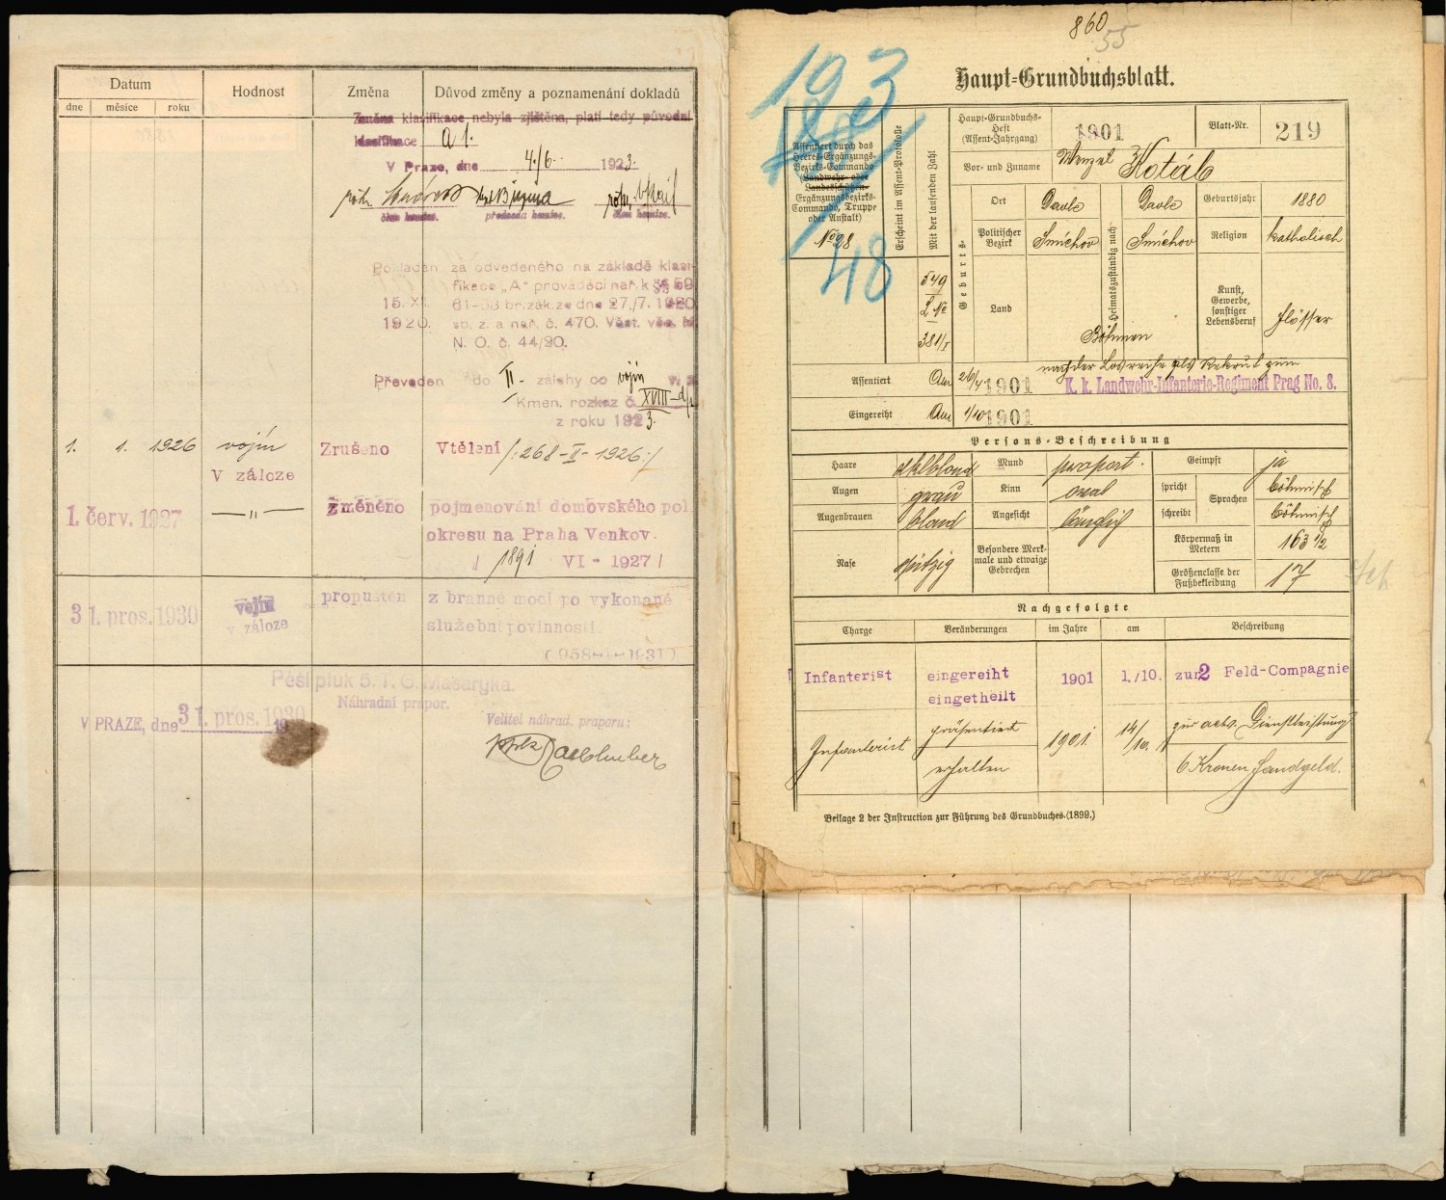 Datum
Hodnost
Změna
Důvod změny a poznamenání dokladů
dne měsíce roku
Změna klasifikace nebyla zjištěna, platí tedy původní
klasifikace a 1.
V Praze, dne 4./6. 1923.
člen komise. předseda komise. člen komise.
Pokládán za odvedeného na základě klasi-
fikace „A" prováděcí nař. k § 59
15. XI. 61-63 br. zák. ze dne 27./7. 1920
1920. sb. z. a nař. č. 470. Věst. věc. M.
N. O. č. 44/20.
Převeden do II. zálohy co vojín
Kmen. rozkaz č. XVIII
z roku 1923.
1. 1. 1926 vojín Zrušeno Vtělení /:268-II-1926:/
V záloze
1. červ. 1927 —"— Změněno pojmenování domovského pol.
okresu na Praha Venkov.
/ 1891 VI - 1927 /
31. pros. 1930 vojín propuštěn z branné moci po vykonané
v záloze služební povinnosti.
(958-I-1931)
Pěší pluk 5. T. G. Masaryka.
Náhradní prapor.
V PRAZE, dne 31. pros. 1930
Velitel náhrad. praporu:
860
55
Haupt-Grundbuchsblatt.
193
48
Assentiert durch das
Heeres-Ergänzungs-
Bezirks-Commando
(Landwehr- oder
Landesschützen-
Ergänzungsbezirks-
Commando, Truppe
oder Anstalt)
No 28
Erscheint im Assent-Protokolle
Mit der laufenden Zahl
549
2 Ne
381/I
Haupt-Grundbuchs-
Heft
(Assent-Jahrgang)
1901
Blatt-Nr.
219
Vor- und Zuname
Wenzel Kotáb
Geburts-
Ort
Davle
Heimatszuständig nach
Davle
Geburtsjahr
1880
Politischer
Bezirk
Smíchov
Smíchov
Religion
katholisch
Land
Böhmen
Kunst,
Gewerbe,
sonstiger
Lebensberuf
Flösser
Assentiert Am 26/4 1901 nach der Losreihe als Rekrut zum
K. k. Landwehr-Infanterie-Regiment Prag No. 8.
Eingereiht Am 1/10 1901
Persons-Beschreibung
Haare dklblond Mund proport. Geimpft ja
Augen grau Kinn oval spricht Sprachen böhmisch
Augenbrauen blond Angesicht länglich schreibt böhmisch
Nase spitzig
Besondere Merk-
male und etwaige
Gebrechen
Körpermaß in
Metern
163 1/2
Größenclasse der
Fußbekleidung
17
Nachgefolgte
Charge Veränderungen im Jahre am Beschreibung
Infanterist eingereiht 1901 1./10. zur 2 Feld-Compagnie
eingetheilt
Infanterist präsentiert 1901 14/10. zur activ. Dienstleistung
erhalten 6 Kronen Handgeld.
Beilage 2 der Instruction zur Führung des Grundbuches (1899.)